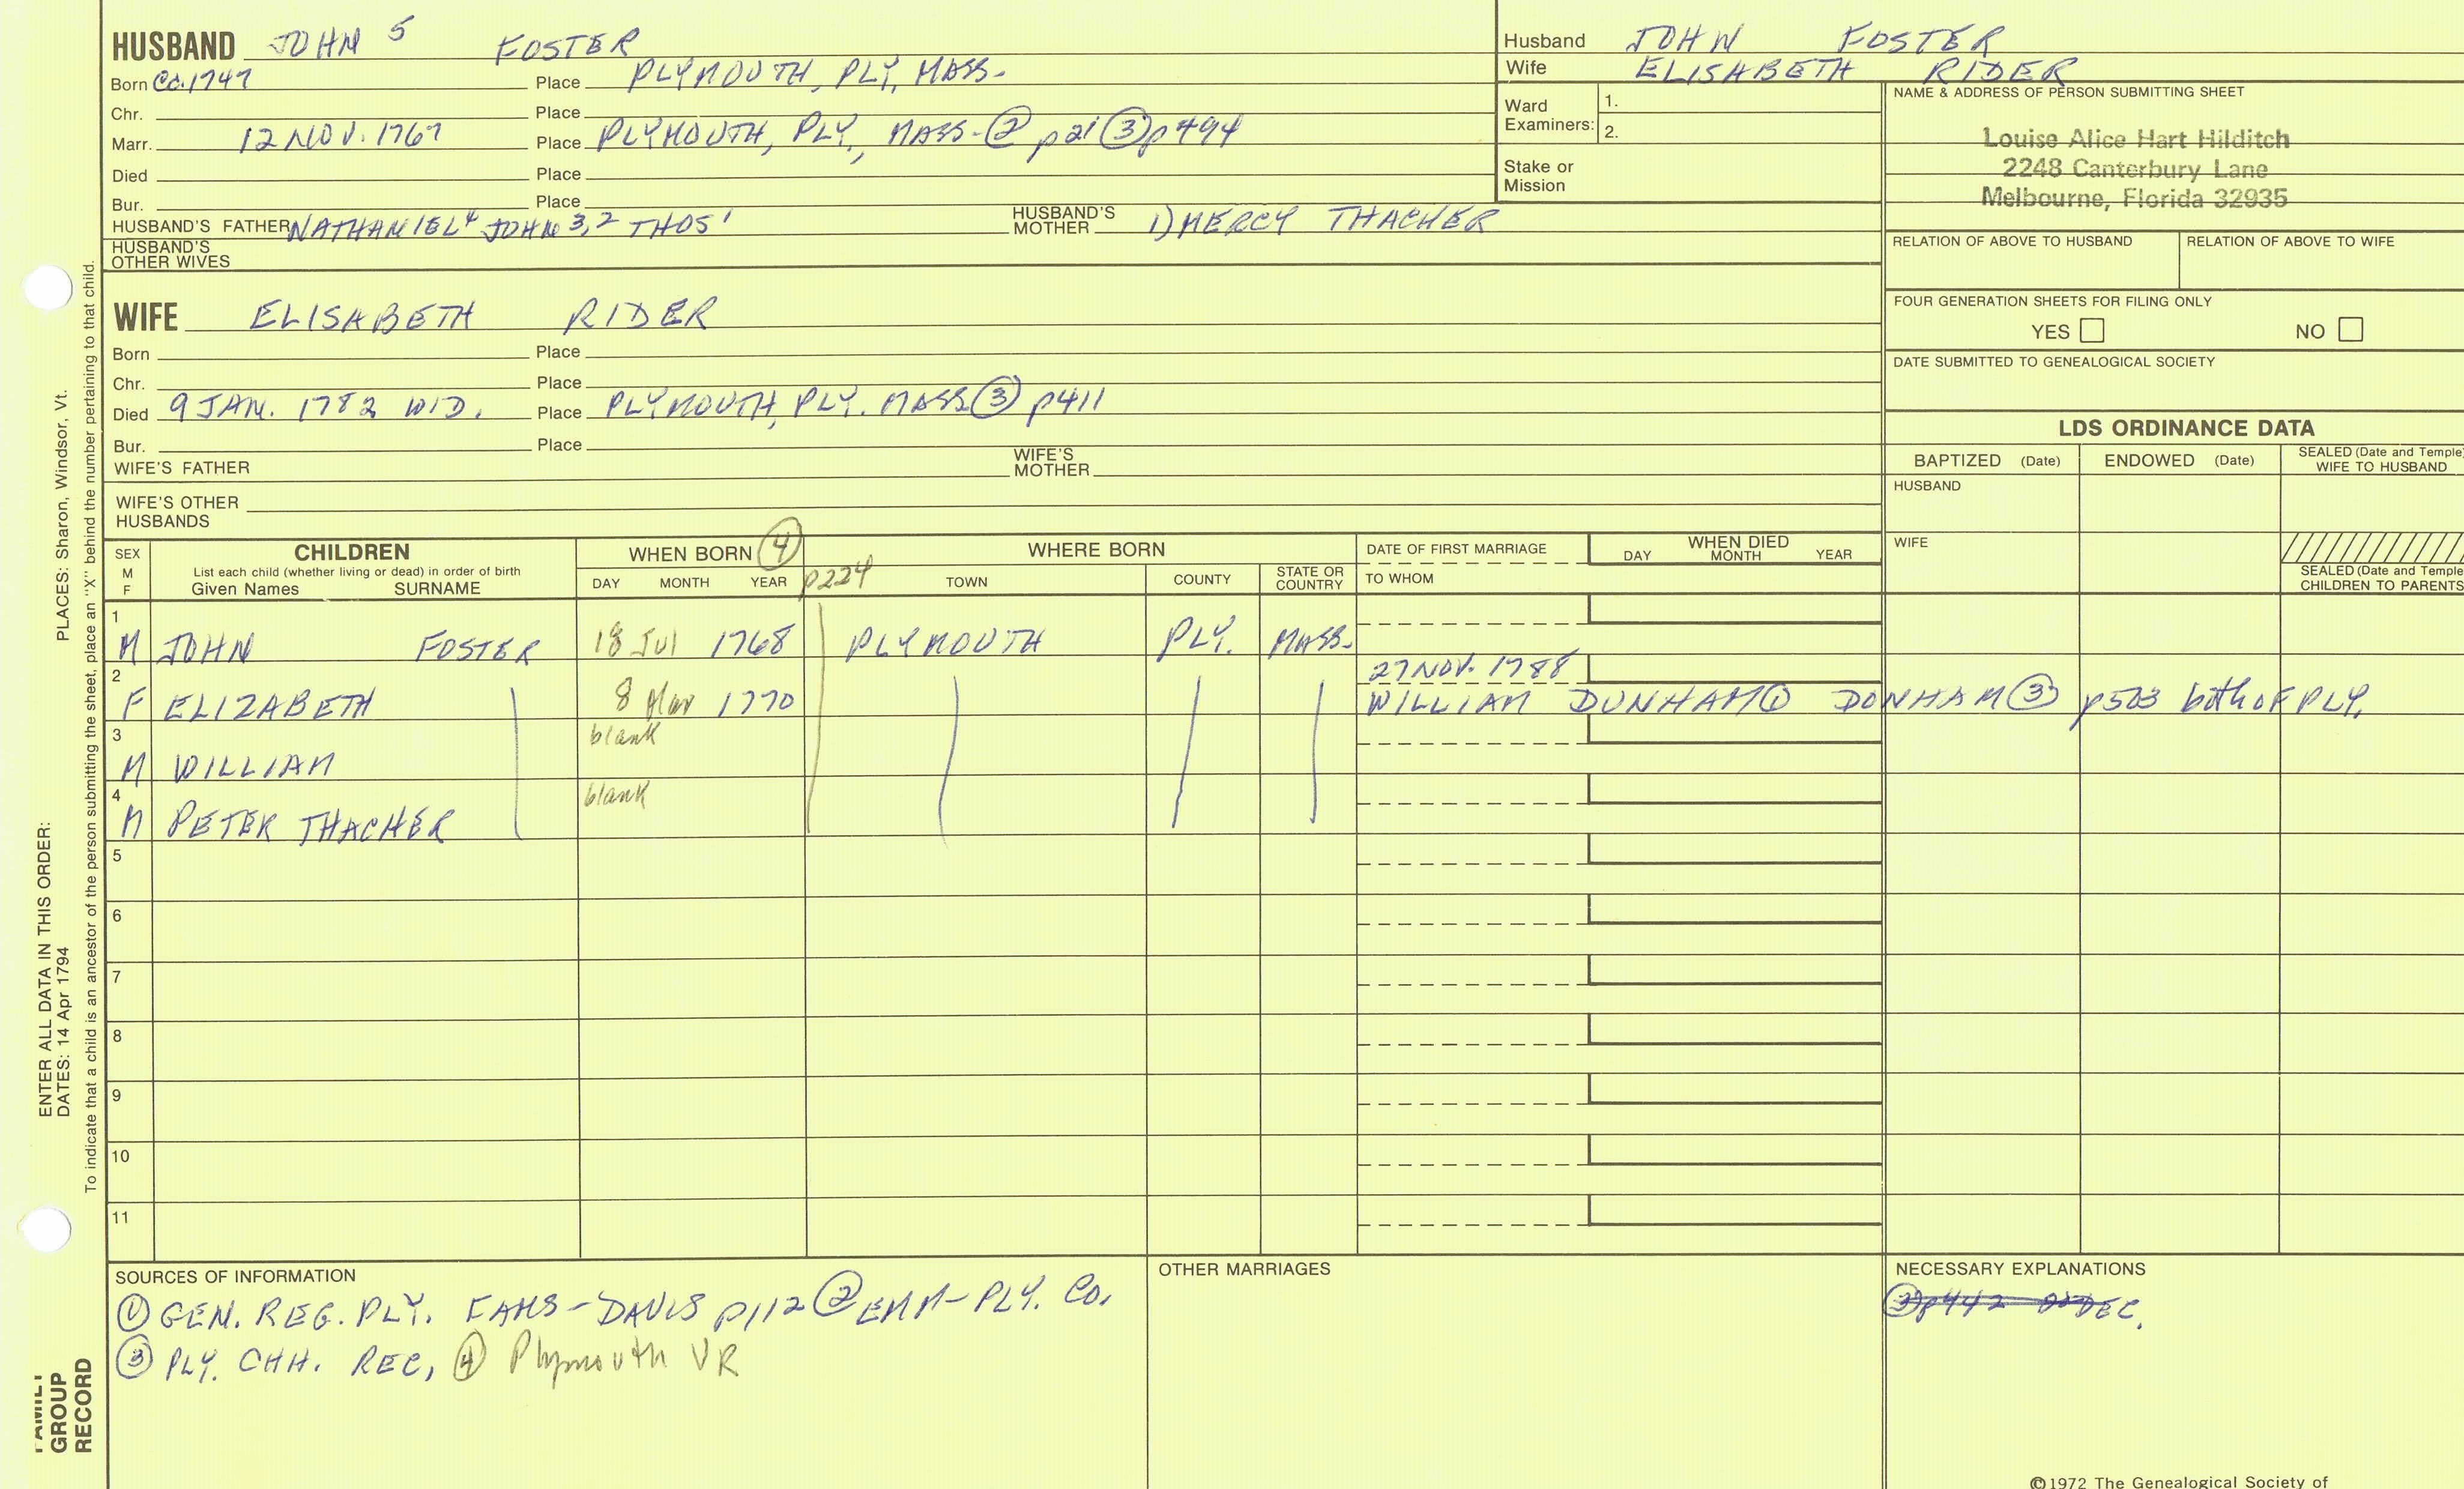 HUSBAND JOHN 5 FOSTER
Born Ca. 1747 Place PLYMOUTH, PLY, MASS.
Chr. Place
Marr. 12 NOV. 1767 Place PLYMOUTH, PLY., MASS. ② p21 ③ p494
Died Place
Bur. Place
HUSBAND'S FATHER NATHANIEL 4 JOHN 3,2 THOS 1 HUSBAND'S MOTHER 1) MERCY THACHER
HUSBAND'S OTHER WIVES
Husband JOHN FOSTER
Wife ELISABETH RIDER
Ward Examiners: 1.
2.
Stake or Mission
NAME & ADDRESS OF PERSON SUBMITTING SHEET
Louise Alice Hart Hilditch
2248 Canterbury Lane
Melbourne, Florida 32935
RELATION OF ABOVE TO HUSBAND RELATION OF ABOVE TO WIFE
FOUR GENERATION SHEETS FOR FILING ONLY
YES NO
DATE SUBMITTED TO GENEALOGICAL SOCIETY
WIFE ELISABETH RIDER
Born Place
Chr. Place
Died 9 JAN. 1782 WID. Place PLYMOUTH, PLY. MASS ③ p411
Bur. Place
WIFE'S FATHER WIFE'S MOTHER
WIFE'S OTHER HUSBANDS
LDS ORDINANCE DATA
BAPTIZED (Date) ENDOWED (Date) SEALED (Date and Temple) WIFE TO HUSBAND
HUSBAND
WIFE
SEALED (Date and Temple) CHILDREN TO PARENTS
SEX M F CHILDREN WHEN BORN ④ WHERE BORN DATE OF FIRST MARRIAGE WHEN DIED
List each child (whether living or dead) in order of birth
Given Names SURNAME DAY MONTH YEAR p224 TOWN COUNTY STATE OR COUNTRY TO WHOM DAY MONTH YEAR
1 M JOHN FOSTER 18 Jul 1768 PLYMOUTH PLY. MASS.
27 NOV. 1788
2 F ELIZABETH 8 Mar 1770 WILLIAM DUNHAM ① DONHAM ③ p503 both of PLY.
3 M WILLIAM blank
4 M PETER THACHER blank
5
6
7
8
9
10
11
SOURCES OF INFORMATION
① GEN. REG. PLY. FAMS - DAVIS p112 ② EMM - PLY. Co.
③ PLY. CHH. REC, ④ Plymouth VR
OTHER MARRIAGES
NECESSARY EXPLANATIONS
③ p442 DEC.
©1972 The Genealogical Society of
PLACES: Sharon, Windsor, Vt.
To indicate that a child is an ancestor of the person submitting the sheet, place an "X" behind the number pertaining to that child.
ENTER ALL DATA IN THIS ORDER:
DATES: 14 Apr 1794
FAMILY
GROUP
RECORD